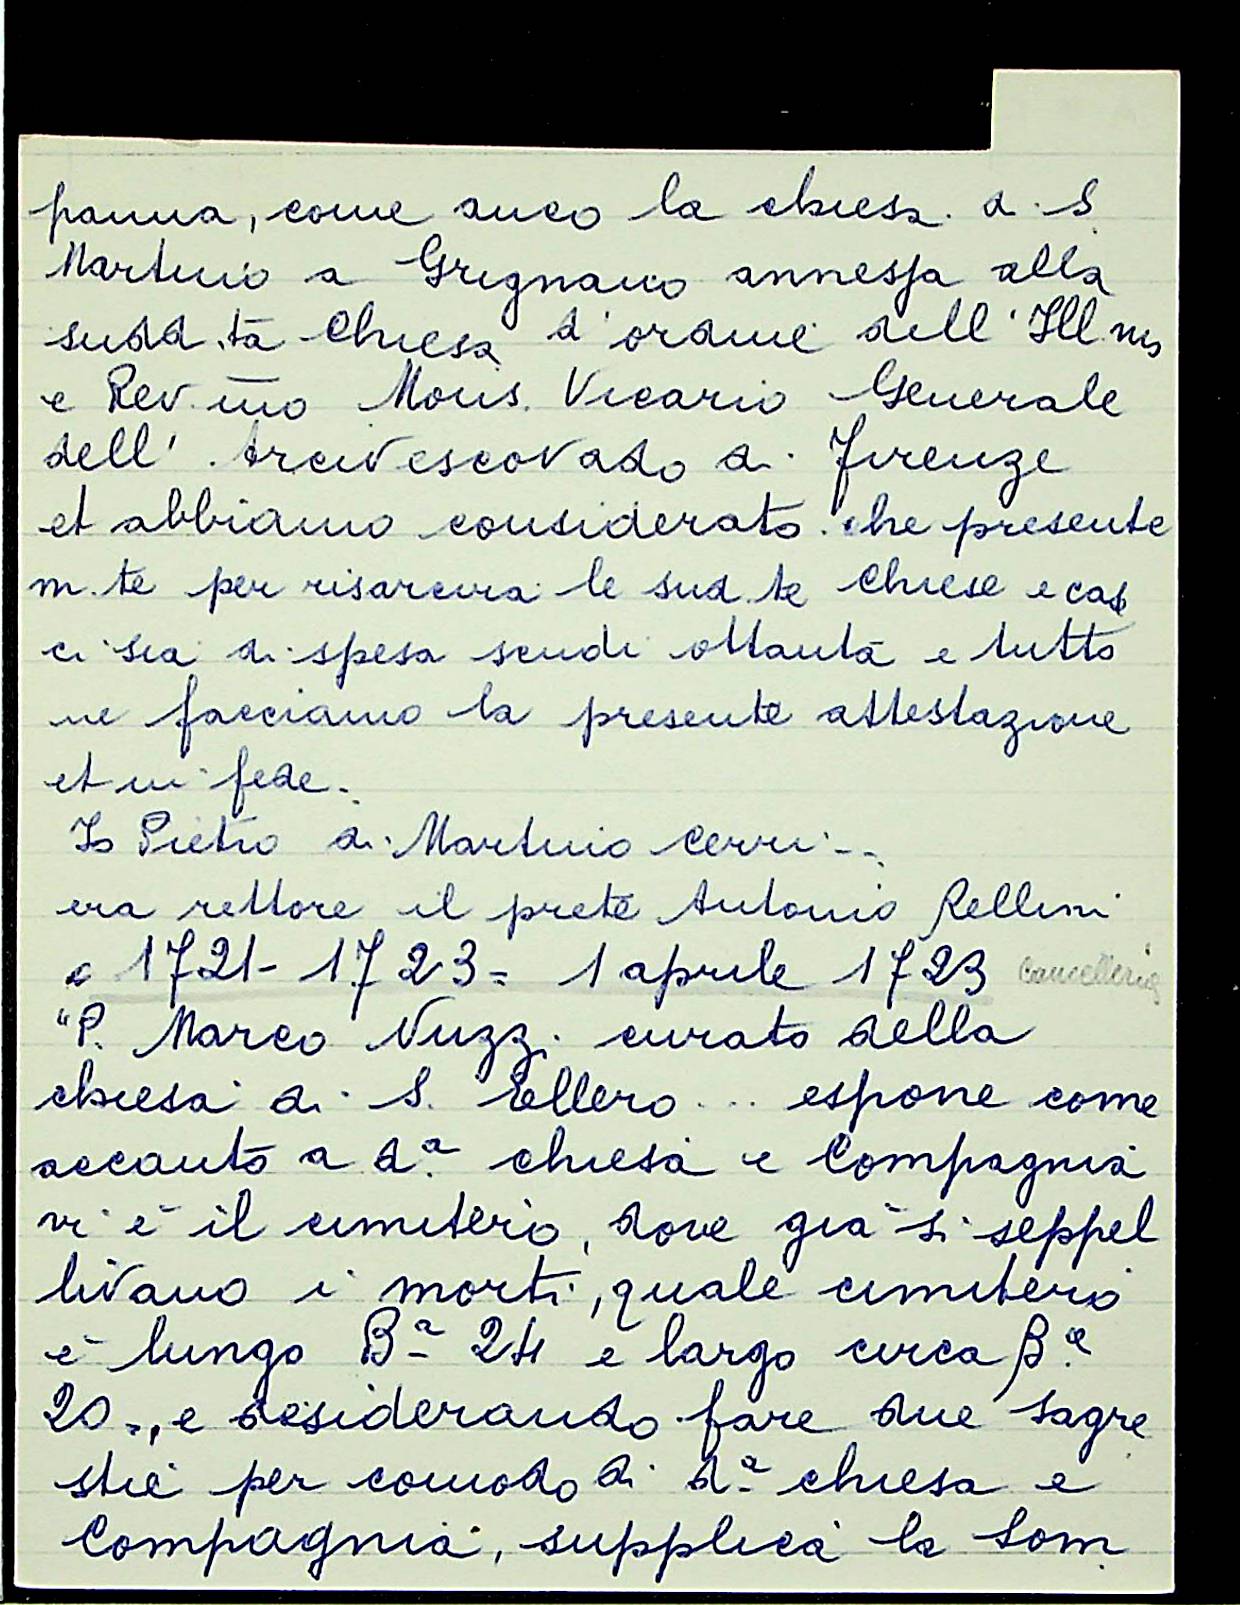 panna, come anco la chiesa di S.
Martino a Grignano annessa alla
sudd.ta Chiesa d'ordine dell'Ill.mo
e Rev.mo Mons. Vicario Generale
dell'Arcivescovado di Firenze
et abbiamo considerato che presente
m.te per risarcire le sud.te Chiese e case
ci sia di spesa scudi ottanta e tutto
ne facciamo la presente attestazione
et in fede.
Io Pietro di Martino Cerri--
era rettore il prete Antonio Rellini
1721-1723= 1 aprile 1723 Cancelleria
"P. Marco Nuzz. curato della
chiesa di S. Ellero ... espone come
accanto a d.a chiesa e Compagnia
vi è il cimiterio, dove già si seppel
livano i morti, quale cimiterio
è lungo B.a 24 e largo circa B.a
20=, e desiderando fare due sagre
stie per comodo di d.a chiesa e
Compagnia, supplica la Som